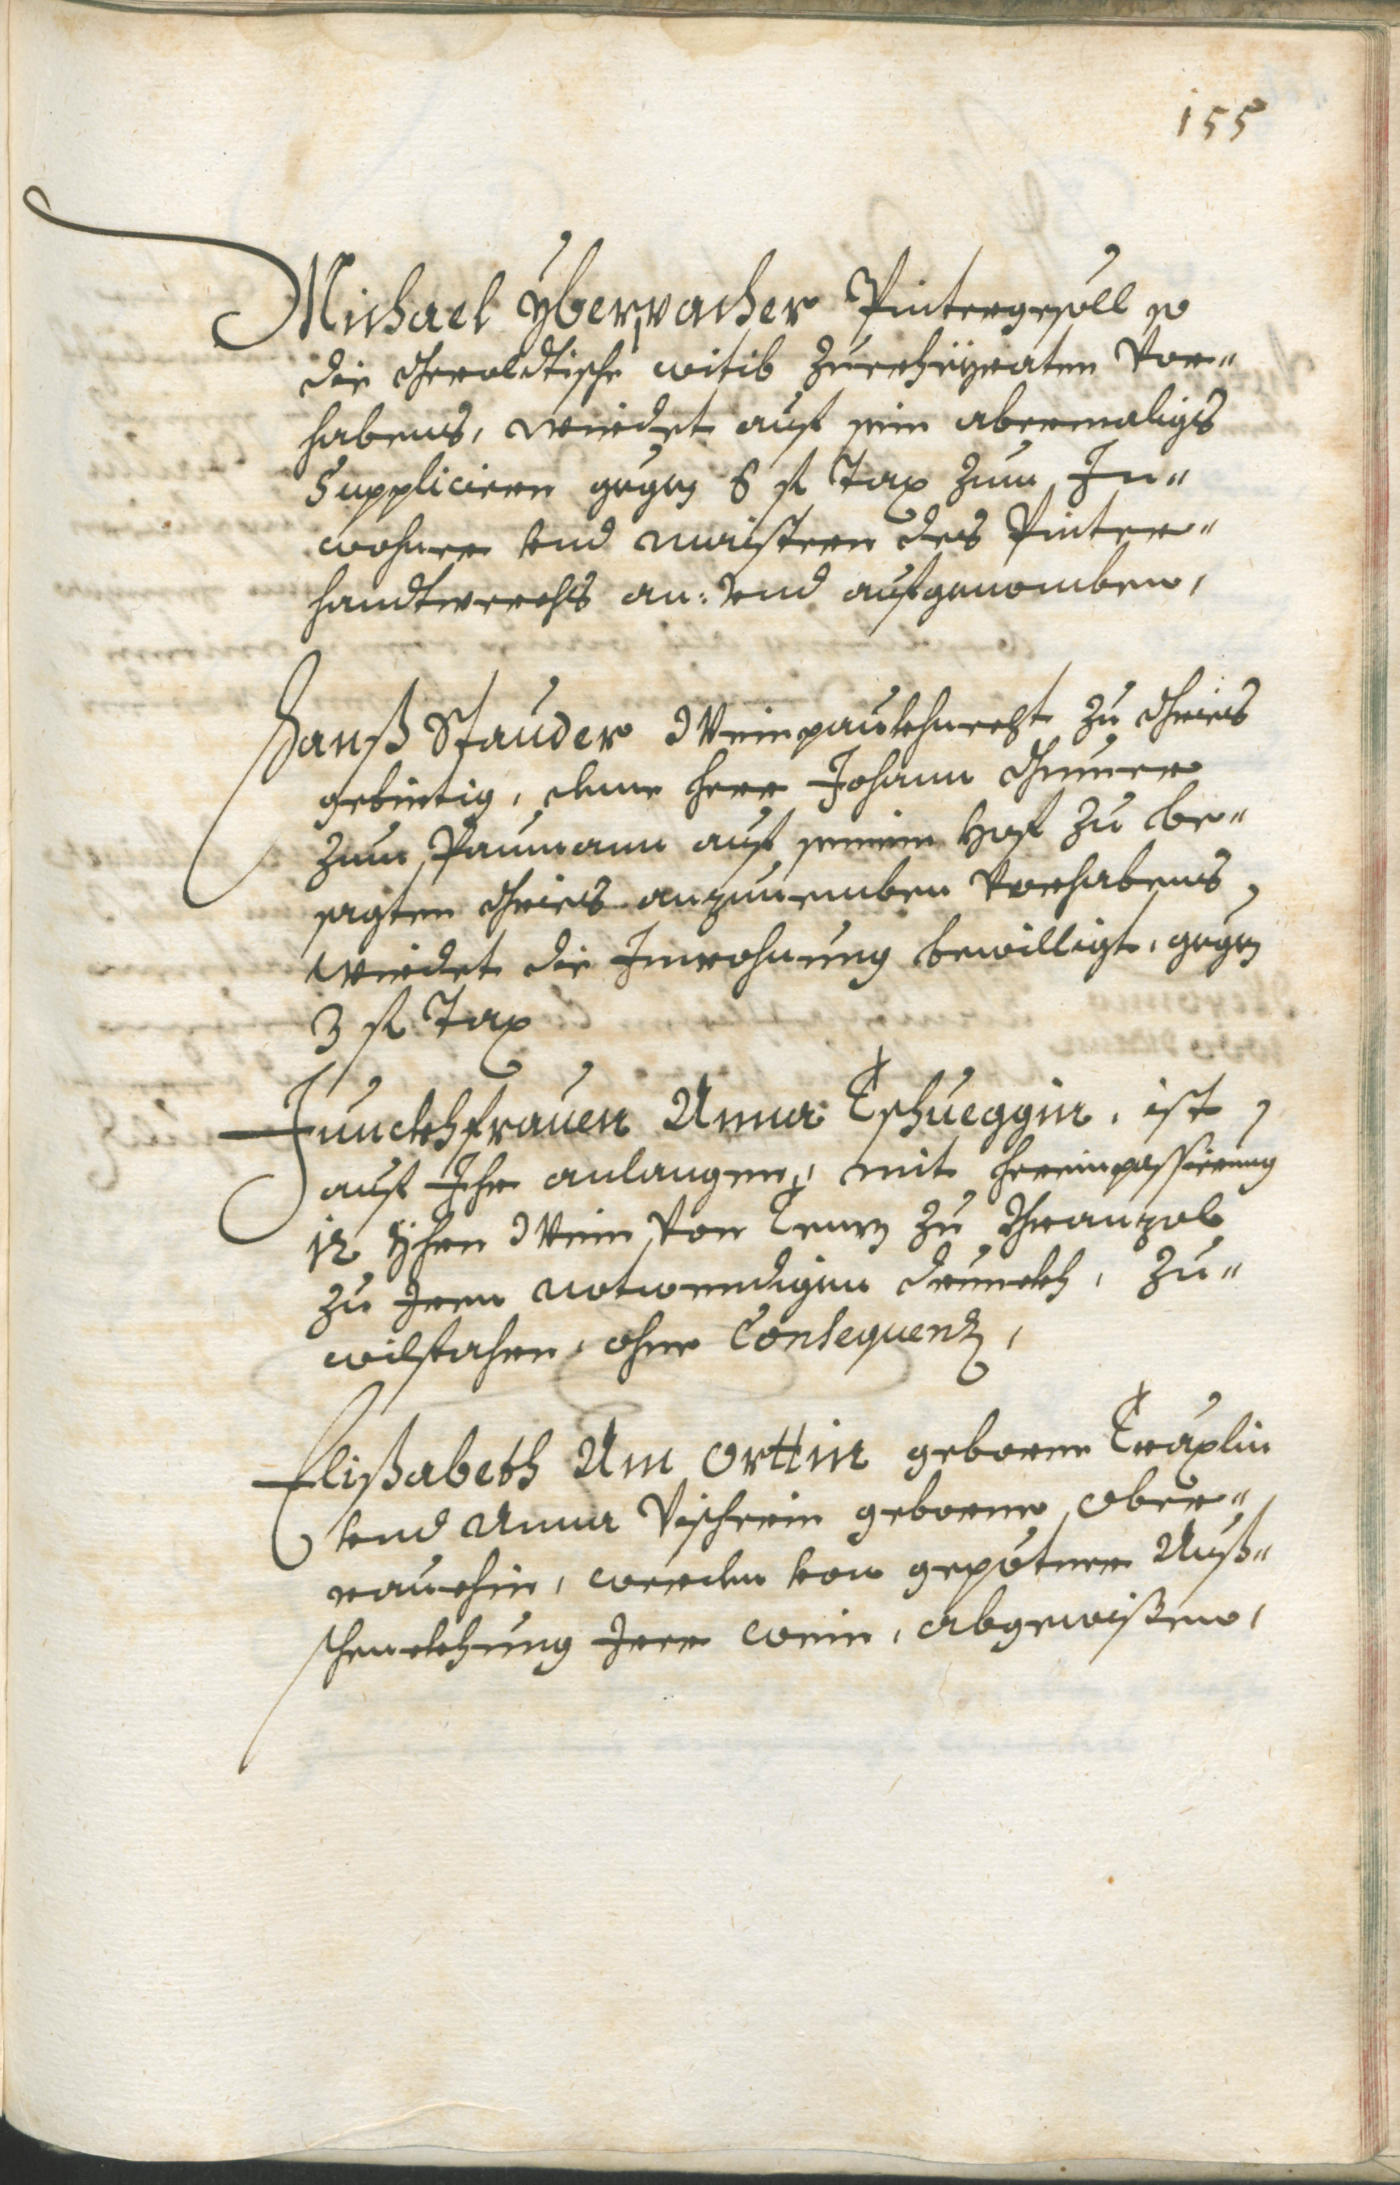 155
Michael Yberpacher Pintergesöll so
die Geroldtische witib zuerheÿraten Vor"
habens, wirdet auf sein abermaligs
Suppliciern gegen 6 fl Tax zum In"
wohner vnd maistern des Pinter"
handtwerchs an: vnd aufgenomben,
Hanß Stauder Weinpaukhnecht zu Gries
gebirtig, deme herr Johann
zum Paumann auf seinem Hof zu be"
sagten Gries anzunemben Vorhabens,
wirdet die Inwohnung bewilligt, gegen
3 fl Tax
Junckhfrauen Anna Tschueggin, ist,
auf Ihr anlangen, mit hereinpassierung
12 Yhrn Wein von zu
zu Iren notwendigen drunckh, zu"
wilfahren, ohne Consequenz,
Elißabeth Am Orttin geborne Träxlin
vnd Anna Vischerin geborne Ober"
rauchin, werden von gepötner Auß"
schenckhung Irer wein, abgewisen,